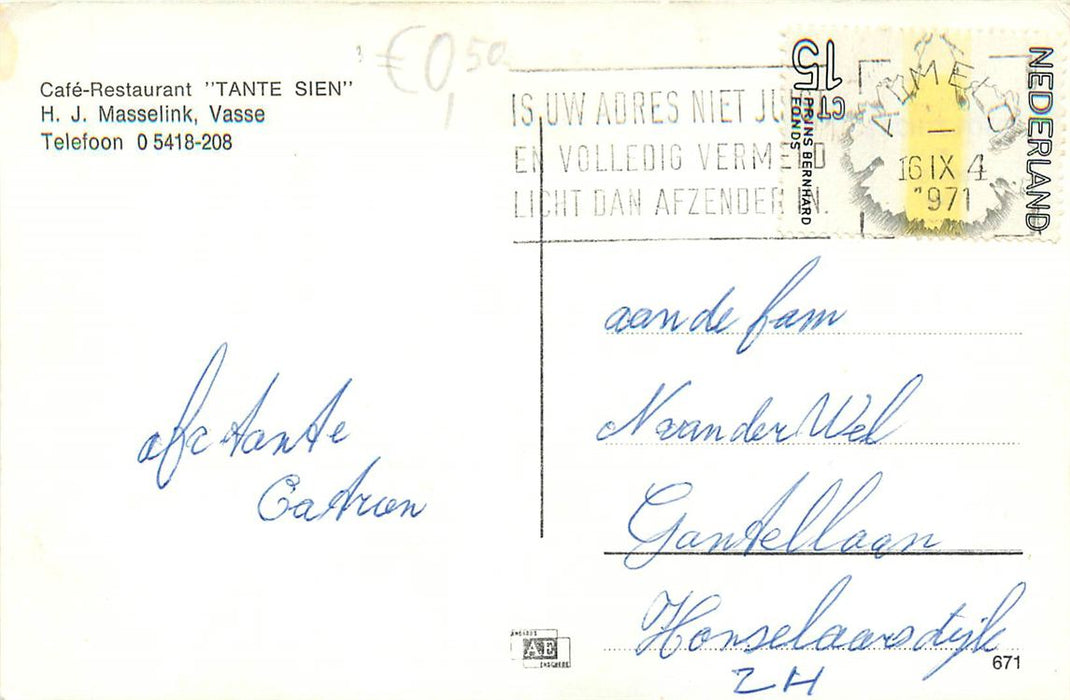 €0,50
Café-Restaurant "TANTE SIEN"
H. J. Masselink, Vasse
Telefoon 0 5418-208
IS UW ADRES NIET JU
EN VOLLEDIG VERMELD
LICHT DAN AFZENDER IN.
15 CT
PRINS BERNHARD
FONDS
NEDERLAND
ALMELO
16 IX 4
1971
aan de fam
N van der Wel
Gantellaan
Honselaarsdijk
ZH
tante
Catrien
AE
671